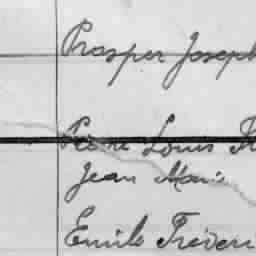 Prosper Joseph
Pierre Louis
Jean Marie
Emile Frédéri